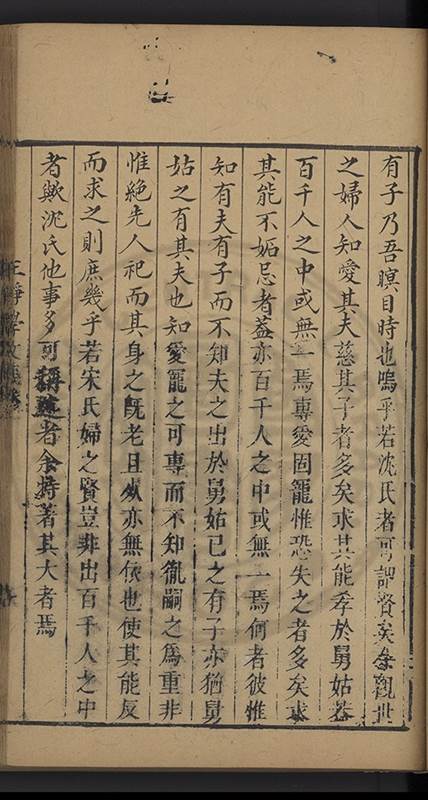 有子乃吾瞑目時也嗚乎若沈氏者可謂賢矣今觀世
之婦人知愛其夫慈其子者多矣求其能孝於舅姑若
百千人之中或無一焉專愛固寵惟恐失之者多矣求
其能不妬忌者蓋亦百千人之中或無一焉何者彼惟
知有夫有子而不知夫之出於舅姑已之有子亦猶舅
姑之有其夫也知愛寵之可專而不知胤嗣之爲重非
惟絶先人祀而其身之旣老且歾亦無依也使其能反
而求之則庶幾乎若宋氏婦之賢豈非出百千人之中
者歟沈氏他事多可稱述者余特著其大者焉